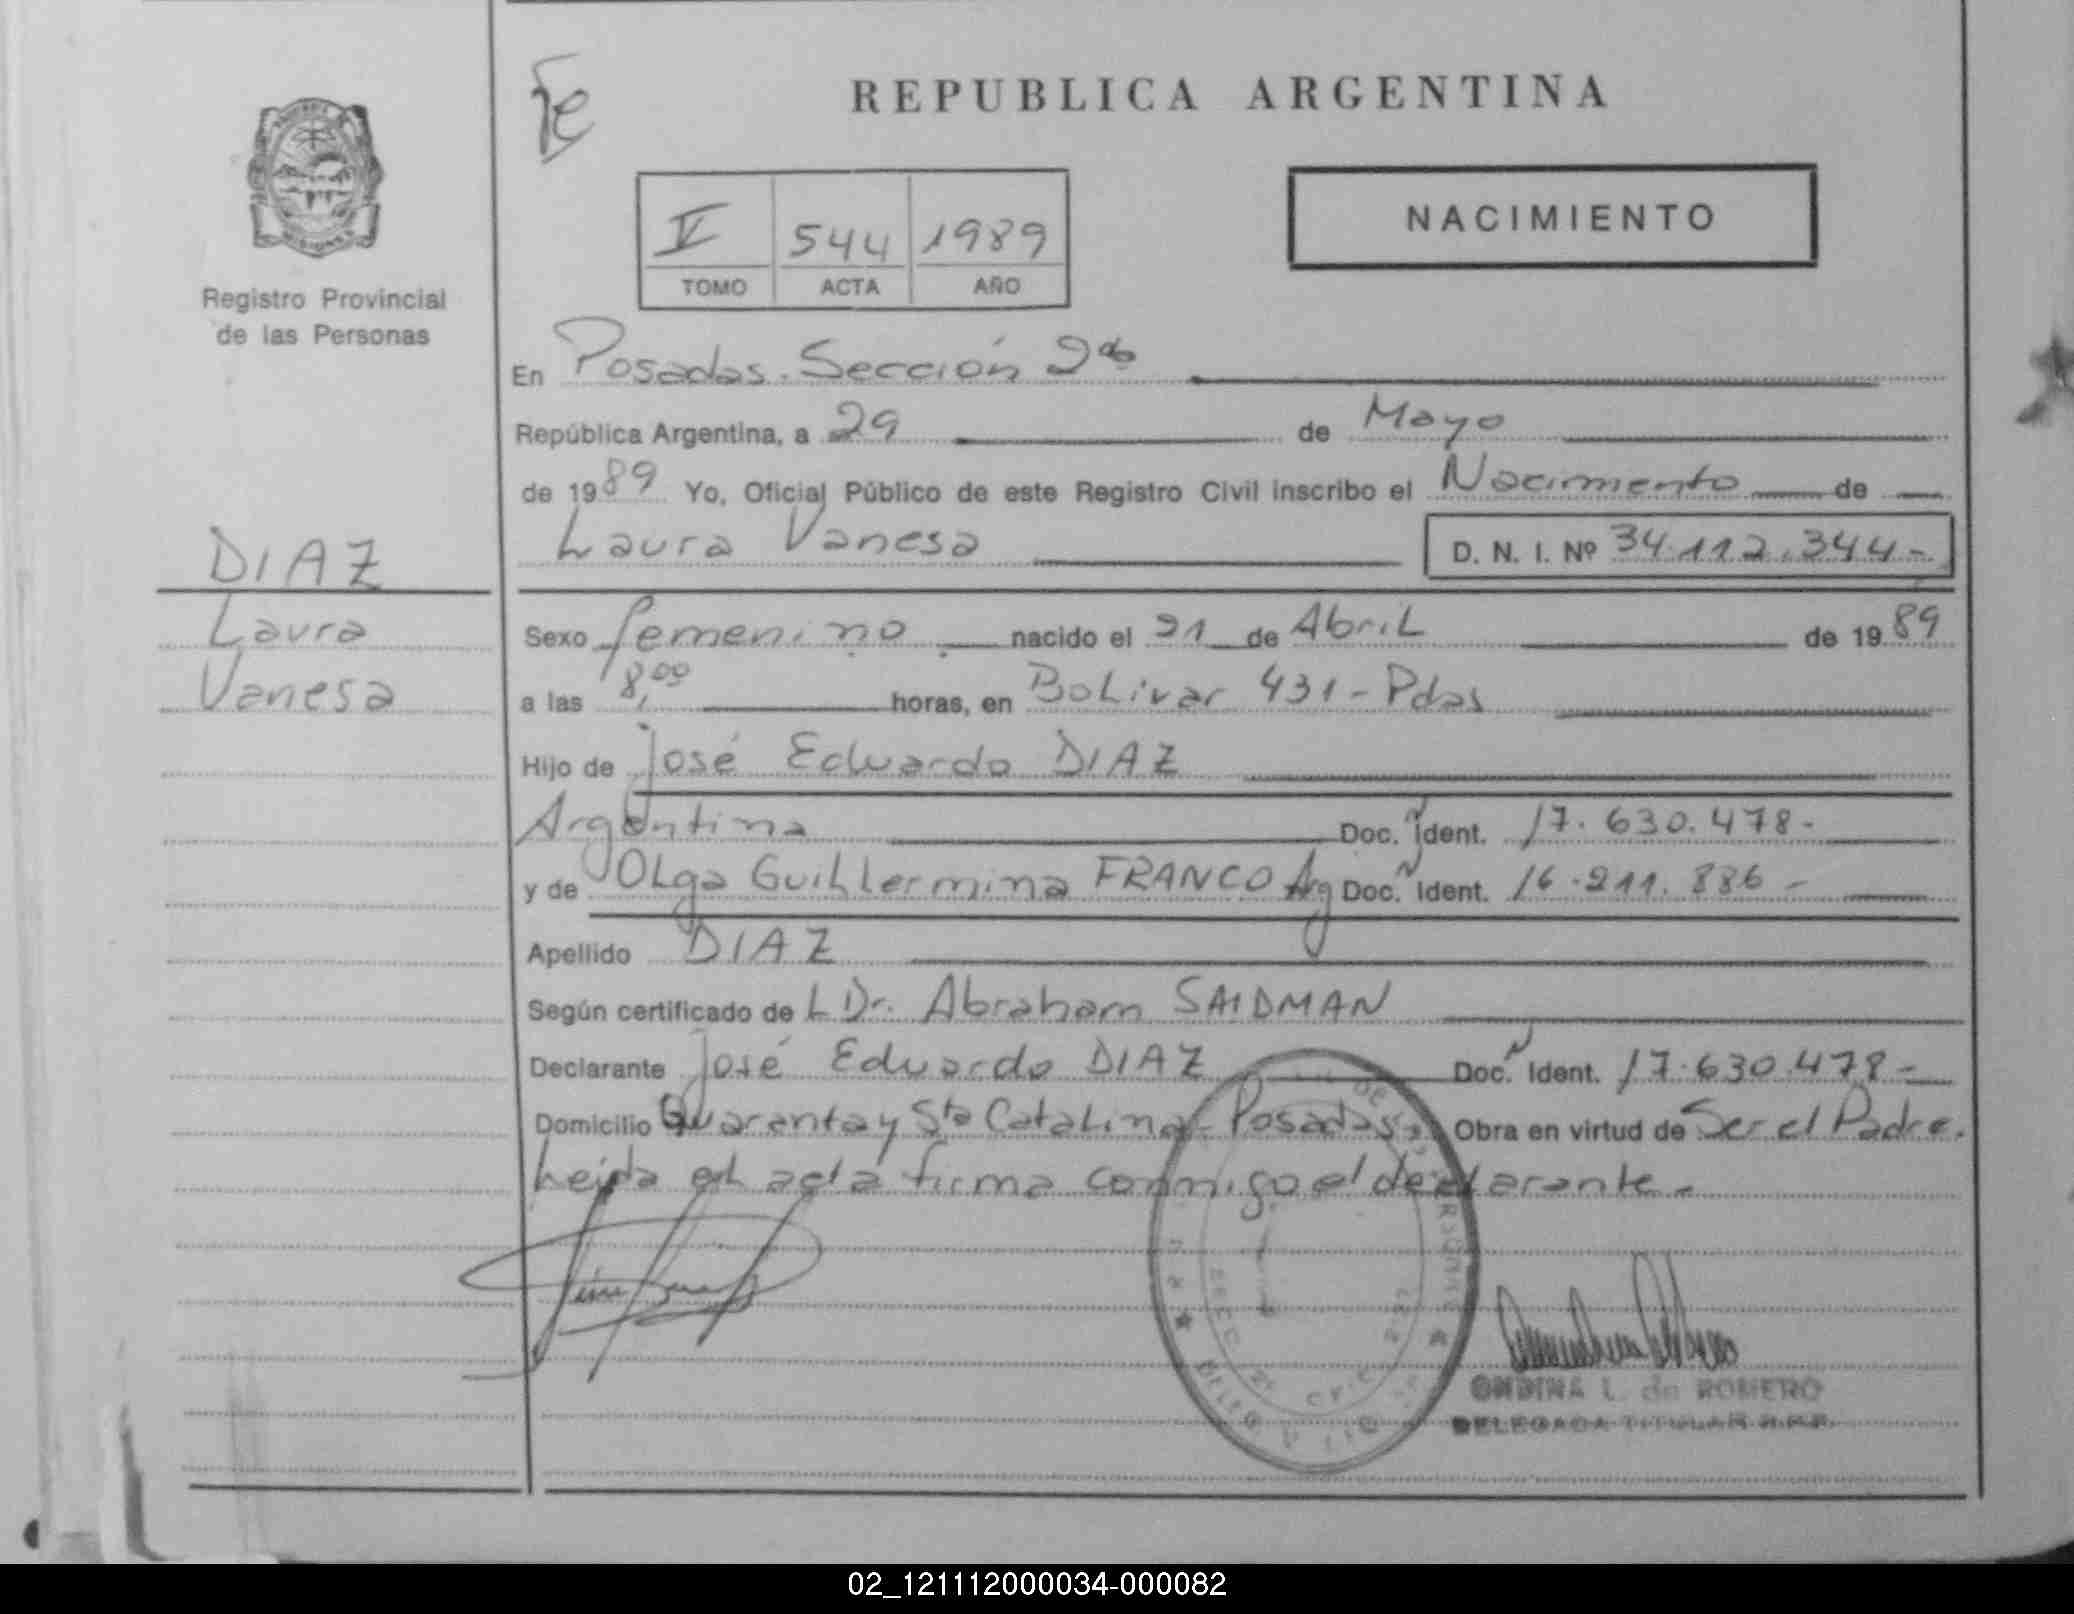 Fe
REPUBLICA ARGENTINA
V 544 1989
TOMO ACTA AÑO
NACIMIENTO
Registro Provincial
de las Personas
En Posadas. Sección 2da
República Argentina, a 29 de Mayo
de 1989 Yo, Oficial Público de este Registro Civil inscribo el Nacimiento de
Laura Vanesa D. N. I. Nº 34.112.344-
DIAZ
Laura
Vanesa
Sexo femenino nacido el 21 de Abril de 1989
a las 8,00 horas, en Bolivar 431 - Pdas
Hijo de José Eduardo DIAZ
Argentina Doc. Ident. 17.630.478-
y de Olga Guihllermina FRANCO Arg Doc. Ident. 16.211.886-
Apellido DIAZ
Según certificado de L Dr. Abraham SAIDMAN
Declarante José Eduardo DIAZ Doc. Ident. 17.630.478-
Domicilio Quarenta y Sta Catalina - Posadas. Obra en virtud de Ser el Padre.
Leida el acta firma conmigo el declarante.-
ONDINA L. de ROMERO
DELEGADA TITULAR R.P.P.
02_121112000034-000082